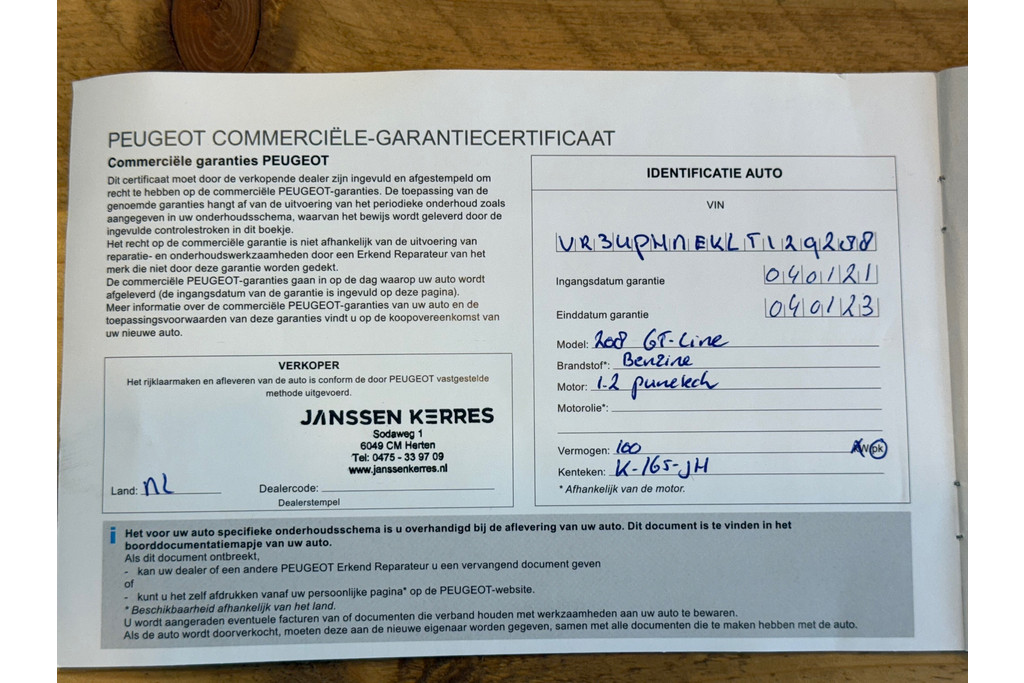 PEUGEOT COMMERCIËLE-GARANTIECERTIFICAAT
Commerciële garanties PEUGEOT
Dit certificaat moet door de verkopende dealer zijn ingevuld en afgestempeld om
recht te hebben op de commerciële PEUGEOT-garanties. De toepassing van de
genoemde garanties hangt af van de uitvoering van het periodieke onderhoud zoals
aangegeven in uw onderhoudsschema, waarvan het bewijs wordt geleverd door de
ingevulde controlestroken in dit boekje.
Het recht op de commerciële garantie is niet afhankelijk van de uitvoering van
reparatie- en onderhoudswerkzaamheden door een Erkend Reparateur van het
merk die niet door deze garantie worden gedekt.
De commerciële PEUGEOT-garanties gaan in op de dag waarop uw auto wordt
afgeleverd (de ingangsdatum van de garantie is ingevuld op deze pagina).
Meer informatie over de commerciële PEUGEOT-garanties van uw auto en de
toepassingsvoorwaarden van deze garanties vindt u op de koopovereenkomst van
uw nieuwe auto.
VERKOPER
Het rijklaarmaken en afleveren van de auto is conform de door PEUGEOT vastgestelde
methode uitgevoerd.
JANSSEN KERRES
Sodaweg 1
6049 CM Herten
Tel: 0475 - 33 97 09
www.janssenkerres.nl
Land: NL Dealercode:
Dealerstempel
IDENTIFICATIE AUTO
VIN
VR3UPHNEKLT129288
Ingangsdatum garantie 040121
Einddatum garantie 040123
Model: 208 GT-Line
Brandstof*: Benzine
Motor: 1.2 puretech
Motorolie*:
Vermogen: 100 kW pk
Kenteken: K-165-JH
* Afhankelijk van de motor.
i Het voor uw auto specifieke onderhoudsschema is u overhandigd bij de aflevering van uw auto. Dit document is te vinden in het
boorddocumentatiemapje van uw auto.
Als dit document ontbreekt,
- kan uw dealer of een andere PEUGEOT Erkend Reparateur u een vervangend document geven
of
- kunt u het zelf afdrukken vanaf uw persoonlijke pagina* op de PEUGEOT-website.
* Beschikbaarheid afhankelijk van het land.
U wordt aangeraden eventuele facturen van of documenten die verband houden met werkzaamheden aan uw auto te bewaren.
Als de auto wordt doorverkocht, moeten deze aan de nieuwe eigenaar worden gegeven, samen met alle documenten die te maken hebben met de auto.